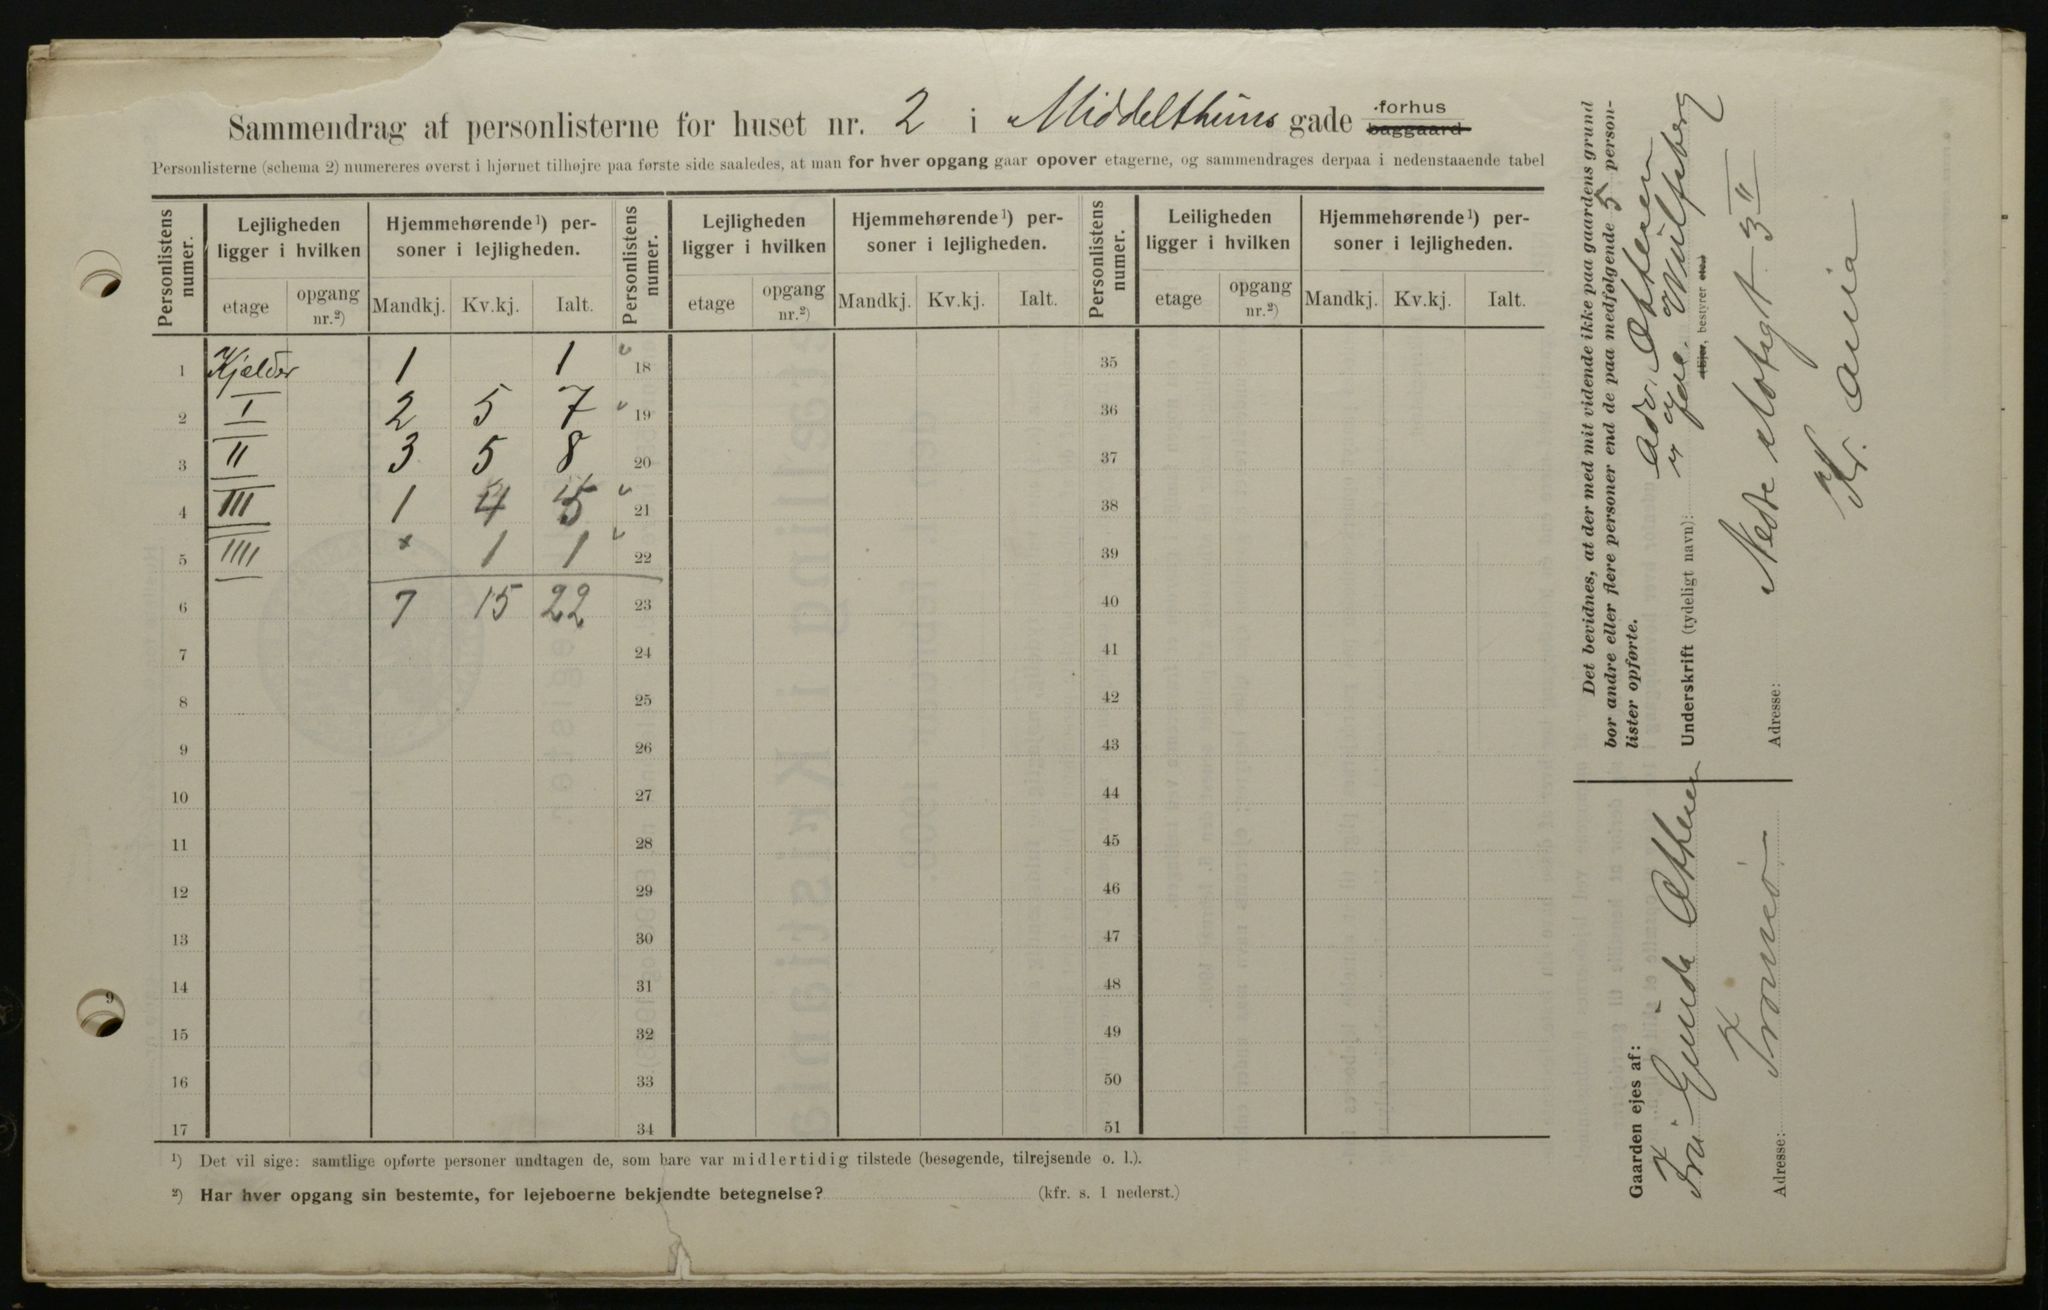 Sammendrag af personlisterne for huset nr. 2 i Middelthuns gade forhus
baggaard
Personlisterne (schema 2) numereres øverst i hjørnet tilhøjre paa første side saaledes, at man for hver opgang gaar opover etagerne, og sammendrages derpaa i nedenstaaende tabel
Personlistens numer. Lejligheden ligger i hvilken Hjemmehørende ¹) personer i lejligheden. Personlistens numer. Lejligheden ligger i hvilken Hjemmehørende ¹) personer i lejligheden. Personlistens numer. Leiligheden ligger i hvilken Hjemmehørende ¹) personer i lejligheden.
etage opgang nr.²) Mandkj. Kv.kj. Ialt. etage opgang nr.²) Mandkj. Kv.kj. Ialt. etage opgang nr.²) Mandkj. Kv.kj. Ialt.
1 Kjelder 1 1 18 35
2 I 2 5 7 19 36
3 II 3 5 8 20 37
4 III 1 4 5 21 38
5 IIII 1 1 22 39
6 7 15 22 23 40
7 24 41
8 25 42
9 26 43
10 27 44
11 28 45
12 29 46
13 30 47
14 31 48
15 32 49
16 33 50
17 34 51
¹) Det vil sige: samtlige opførte personer undtagen de, som bare var midlertidig tilstede (besøgende, tilrejsende o. l.).
²) Har hver opgang sin bestemte, for lejeboerne bekjendte betegnelse? (kfr. s. 1 nederst.)
Det bevidnes, at der med mit vidende ikke paa gaardens grund
bor andre eller flere personer end de paa medfølgende 5 person-
lister opførte.
Underskrift (tydeligt navn):
Ejer, bestyrer etc.
Adresse: Nedre Slotsgt 3 II
Kr. ania
Gaarden ejes af:
Adresse:
9